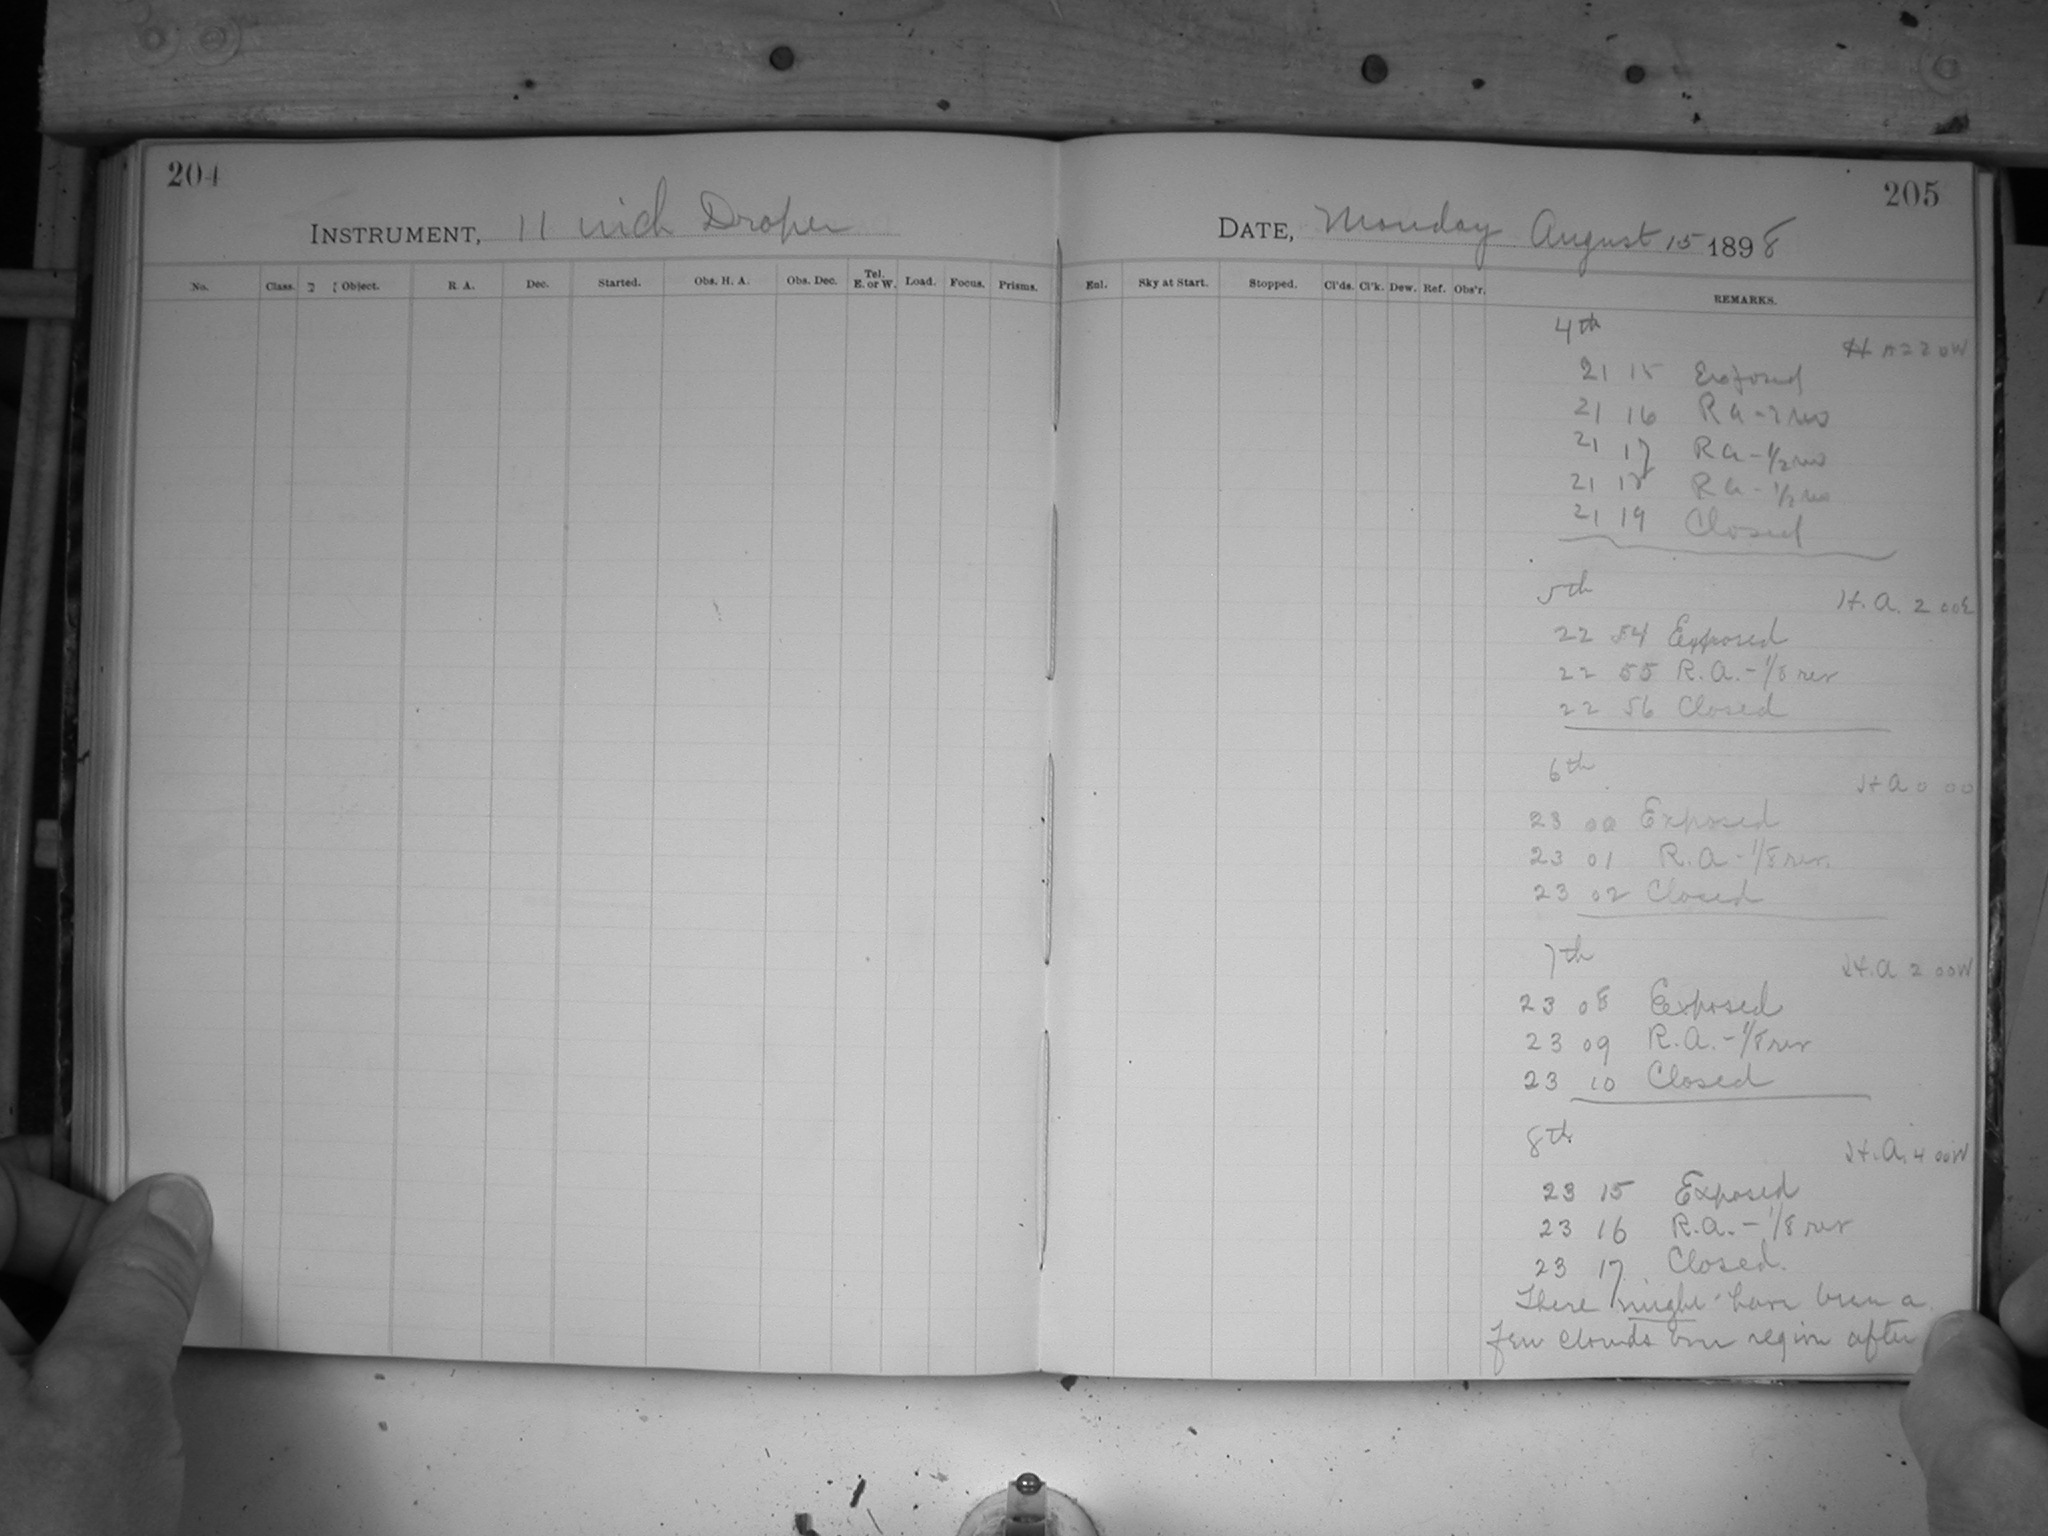 204
INSTRUMENT, 11 inch Draper
No. Class. Object. R. A. Dec. Started. Obs. H. A. Obs. Dec. Tel. E. or W. Load. Focus. Prisms.
205
DATE, Monday August 15 1898
Enl. Sky at Start. Stopped. Cl'ds. Cl'k. Dew. Ref. Obs'r. REMARKS.
4th
21 15 Exposed
21 16 R a -
21 17 R a - 1/2 rev
21 18 R a - 1/2 rev
21 19 Closed
5th
H. A. 2 00E
22 54 Exposed
22 55 R. A. - 1/8 rev
22 56 Closed
6th
H A 0 00
23 00 Exposed
23 01 R. A - 1/8 rev.
23 02 Closed
7th
H. A 2 00W
23 08 Exposed
23 09 R. A. - 1/8 rev
23 10 Closed
8th
H. A. 4 00W
23 15 Exposed
23 16 R. A. - 1/8 rev
23 17 Closed.
There might have been a
few clouds in region after